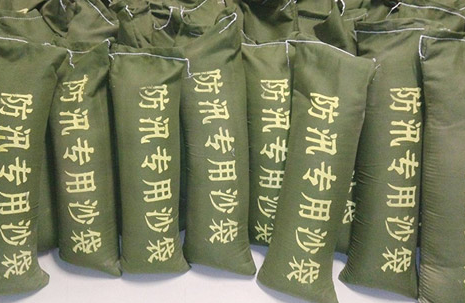 防汛专用沙袋
防汛专用沙袋
防汛专用沙袋
防汛专用沙袋
防汛专用沙袋
防汛专用沙袋
防汛专用沙袋